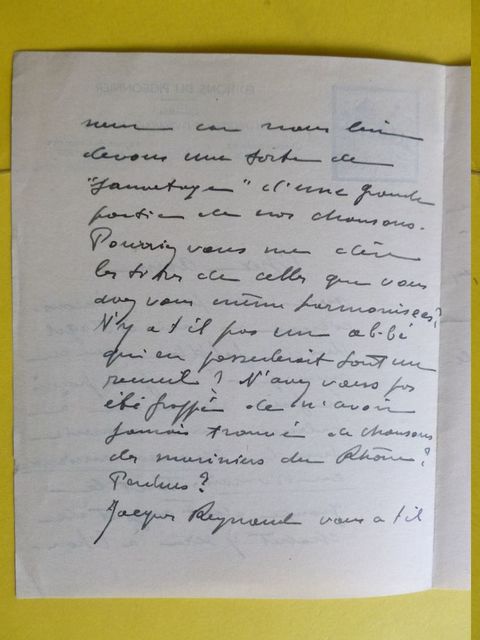 car nous lui
devons une sorte de
"sauvetage" d'une grande
partie de nos chansons.
Pourriez vous me dire
les titres de celles que vous
avez vous même harmonisées?
N'y a t'il pas un abbé
qui en possederait tout un
recueil? N'avez vous pas
été frappé de n'avoir
jamais trouvé de chansons
de mariniers du Rhône?
Perdues?
Jacques Reynaud vous a t'il
ÉDITIONS DU PIGEONNIER